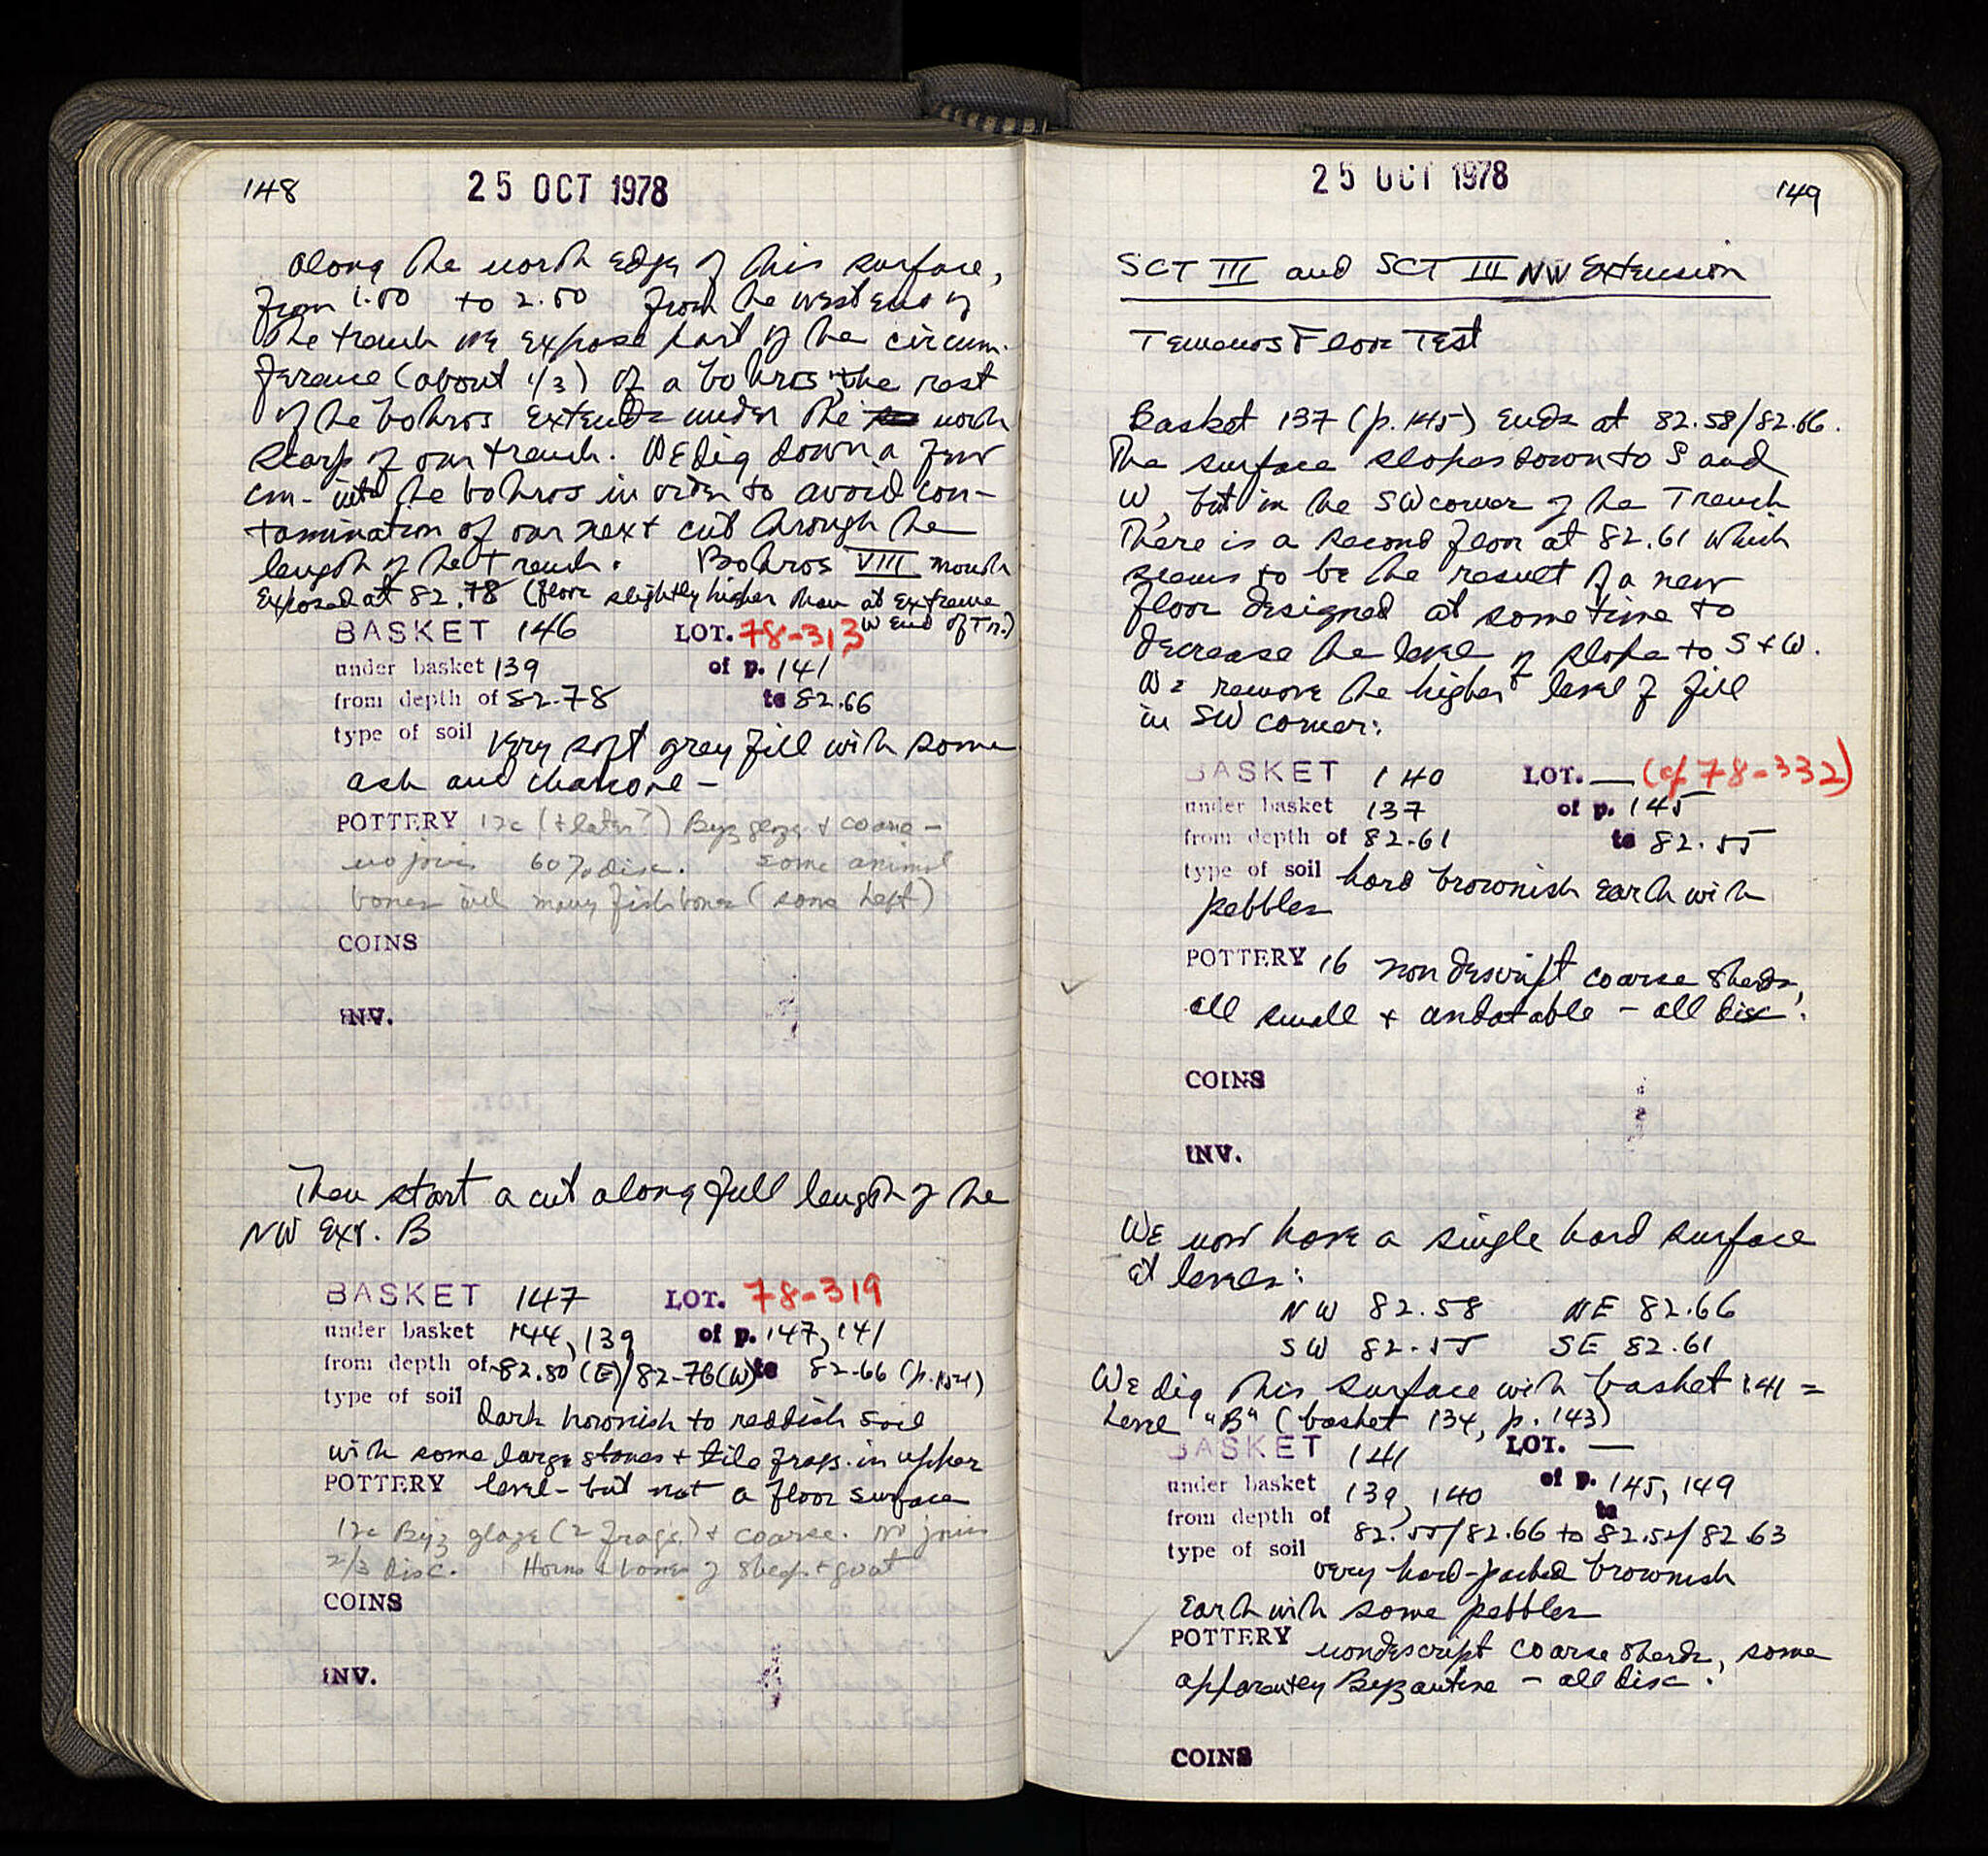 148
25 OCT 1978
along the north edge of this surface,
from 1.80 to 2.80 from the west end of
the trench we expose part of the circum-
ference (about 1/3) of a bothros; the rest
of the bothros extends under the north
scarp of our trench. We dig down a few
cm. into the bothros in order to avoid con-
tamination of our next cut through the
length of the trench. Bothros VIII mouth
exposed at 82.78 (floor slightly higher than at extreme
W end of Tr.)
BASKET 146 LOT. 78-313
under basket 139 of p. 141
from depth of 82.78 to 82.66
type of soil very soft grey fill with some
ash and charcoal -
POTTERY 12c (+ later?) Byz glaze + coarse -
no joins 60% disc. some animal
bones and many fishbones (some kept)
COINS
INV.
Then start a cut along full length of the
NW Ext. B
BASKET 147 LOT. 78-319
under basket 144, 139 of p. 147, 141
from depth of ~82.80 (E)/82.76(W) to 82.66 (p.152)
type of soil dark brownish to reddish soil
with some large stones + tile frags. in upper
POTTERY level - but not a floor surface
12c Byz glaze (2 frags.) + coarse. No joins
2/3 disc. Horns + bones of sheep + goat
COINS
INV.
25 OCT 1978
149
SCT III and SCT III NW Extension
Temenos Floor Test
Basket 137 (p. 145) ends at 82.58/82.66.
The surface slopes down to S and
W, but in the SW corner of the Trench
there is a second floor at 82.61 which
seems to be the result of a new
floor designed at some time to
decrease the level of slope to S + W.
We remove the higher level of fill
in SW corner:
BASKET 140 LOT. — (cf 78-332)
under basket 137 of p. 145
from depth of 82.61 to 82.55
type of soil hard brownish earth with
pebbles
POTTERY 16 nondescript coarse sherds,
all small + undatable - all disc.
COINS
INV.
We now have a single hard surface
at levels:
NW 82.58 NE 82.66
SW 82.55 SE 82.61
We dig this surface with basket 141 =
level "B" (basket 134, p. 143)
BASKET 141 LOT. —
under basket 139, 140 of p. 145, 149
from depth of 82.55/82.66 to 82.52/82.63
type of soil very hard-packed brownish
earth with some pebbles
POTTERY nondescript coarse sherds, some
apparently Byzantine - all disc.
COINS